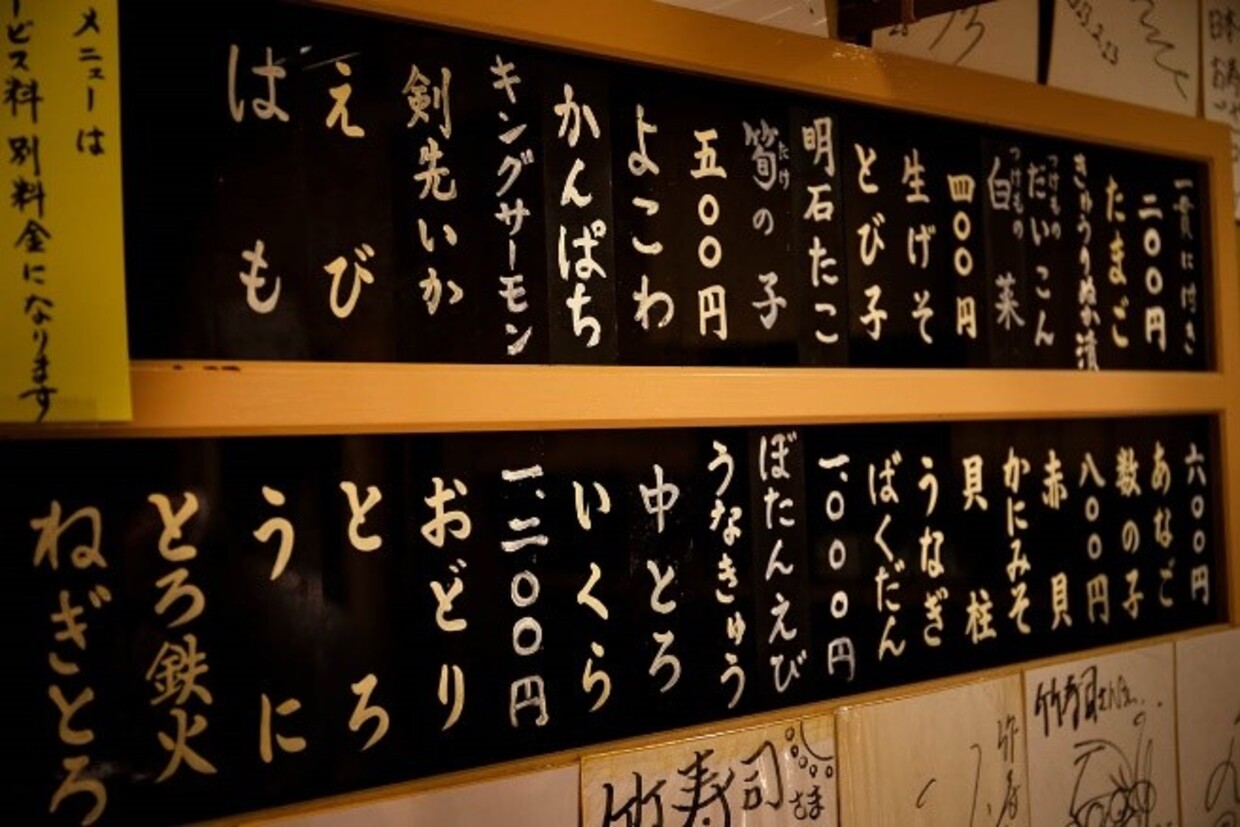 一貫に付き
二〇〇円
たまご
きゅうりぬか漬
つけもの
だいこん
つけもの
白菜
四〇〇円
生げそ
とび子
明石たこ
たけ
筍の子
五〇〇円
よこわ
かんぱち
キングサーモン
剣先いか
えび
はも
六〇〇円
あなご
数の子
八〇〇円
赤貝
かにみそ
貝柱
うなぎ
ばくだん
一、〇〇〇円
ぼたんえび
うなきゅう
中とろ
いくら
一、二〇〇円
おどり
とろ
うに
とろ鉄火
ねぎとろ
メニューは
ービス料別料金になります
竹寿司さま
竹寿司さん江